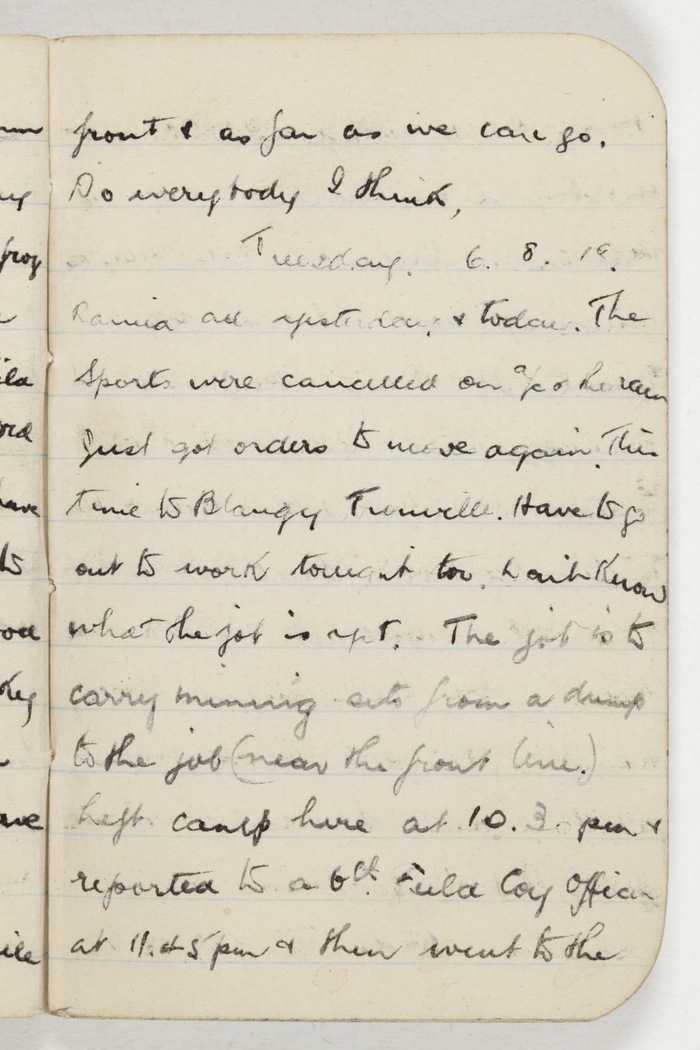 front & as far as we can go.
So everybody I think,
Tuesday. 6. 8. 18.
Rained all yesterday, & today. The
Sports were cancelled on a/c o the rain
Just got orders to move again. This
time to Blangy Tronville. Have to go
out to work tonight too. Don't know
what the job is yet. The job is to
carry mining sets from a dump
to the job (near the front line.)
Left camp here at 10.3 pm &
reported to a 6th. Field Coy Officer
at 11.45 pm & then went to the